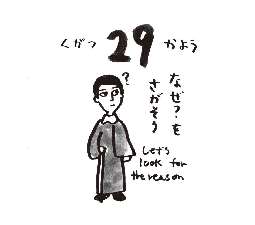 くがつ 29 かよう
?
なぜ?を
さがそう
Let's
look for
the reason